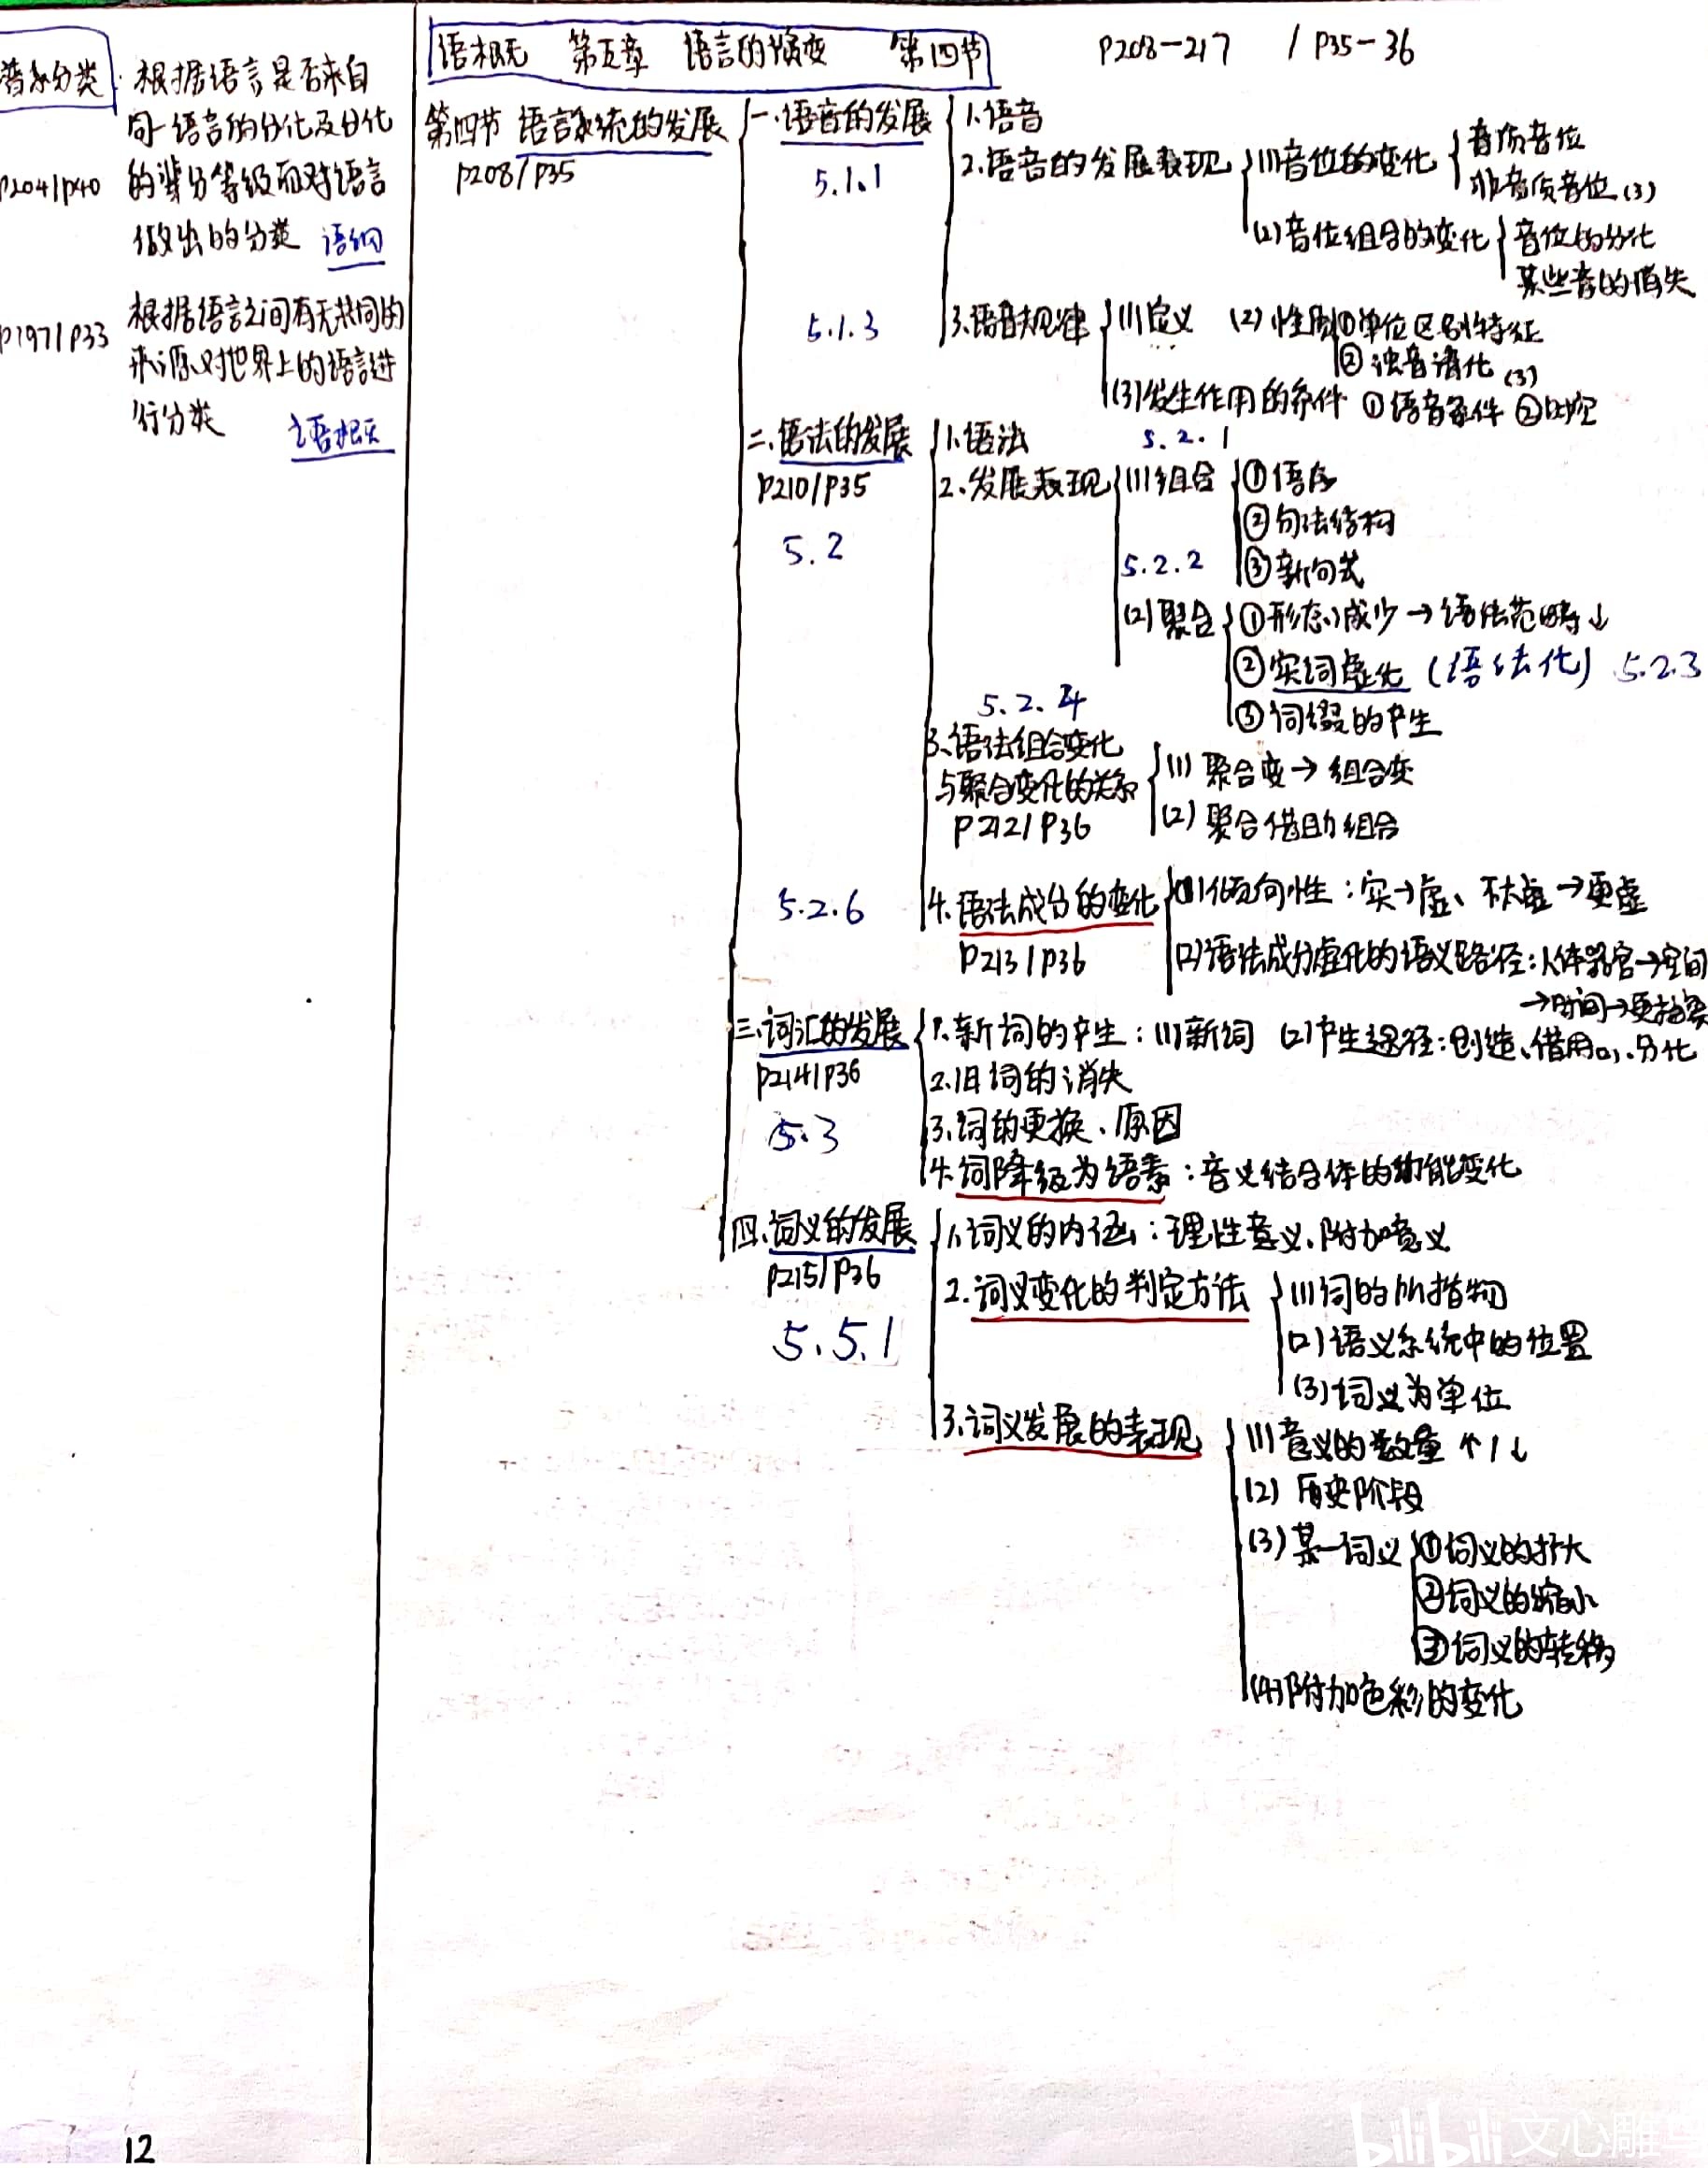 谱系分类：根据语言是否来自
同一语言的分化及分化
P204/P40 的辈分等级而对语言
做出的分类 语纲
根据语言之间有无共同的
P197/P33 来源对世界上的语言进
行分类 语概
语概 第五章 语言的演变 第四节 P208-217 / P35-36
第四节 语言系统的发展
P208/P35
一.语音的发展
5.1.1
1.语音
2.语音的发展表现
(1)音位的变化
音质音位
非音质音位(3)
(2)音位组合的变化
音位的分化
某些音的消失
5.1.3
3.语音规律
(1)定义 (2)性质①单位区别特征
②浊音清化(3)
(3)发生作用的条件 ①语音条件 ②时空
二.语法的发展
P210/P35
5.2
1.语法 5.2.1
2.发展表现
(1)组合
①语序
②句法结构
③新句式
5.2.2
(2)聚合
①形态减少→语法范畴↓
②实词虚化（语法化）5.2.3
③词缀的产生
5.2.4
3.语法组合变化
与聚合变化的关系
P212/P36
(1) 聚合变→组合变
(2) 聚合借助组合
5.2.6
4.语法成分的变化
P213/P36
(1)倾向性：实→虚、不太虚→更虚
(2)语法成分虚化的语义路径：人体器官→空间
→时间→更抽象
三.词汇的发展
P214/P36
5.3
1.新词的产生：(1)新词 (2)产生途径：创造、借用(2)、分化
2.旧词的消失
3.词的更换、原因
4.词降级为语素：音义结合体的功能变化
四.词义的发展
P215/P36
5.5.1
1.词义的内涵：理性意义、附加意义
2.词义变化的判定方法
(1)词的所指物
(2)语义系统中的位置
(3)词义为单位
3.词义发展的表现
(1)意义的数量↑/↓
(2) 历史阶段
(3)某一词义
①词义的扩大
②词义的缩小
③词义的转移
(4)附加色彩的变化
12
bilibili 文心雕